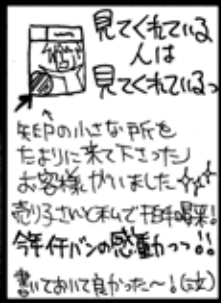 見てくれている
人は
見てくれているっ
矢印の小さな所を
たよりに来て下さった
お客様がいました
売り子さんと私で拍手喝采!
今年イチバンの感動っっ!!
書いておいて良かった~!